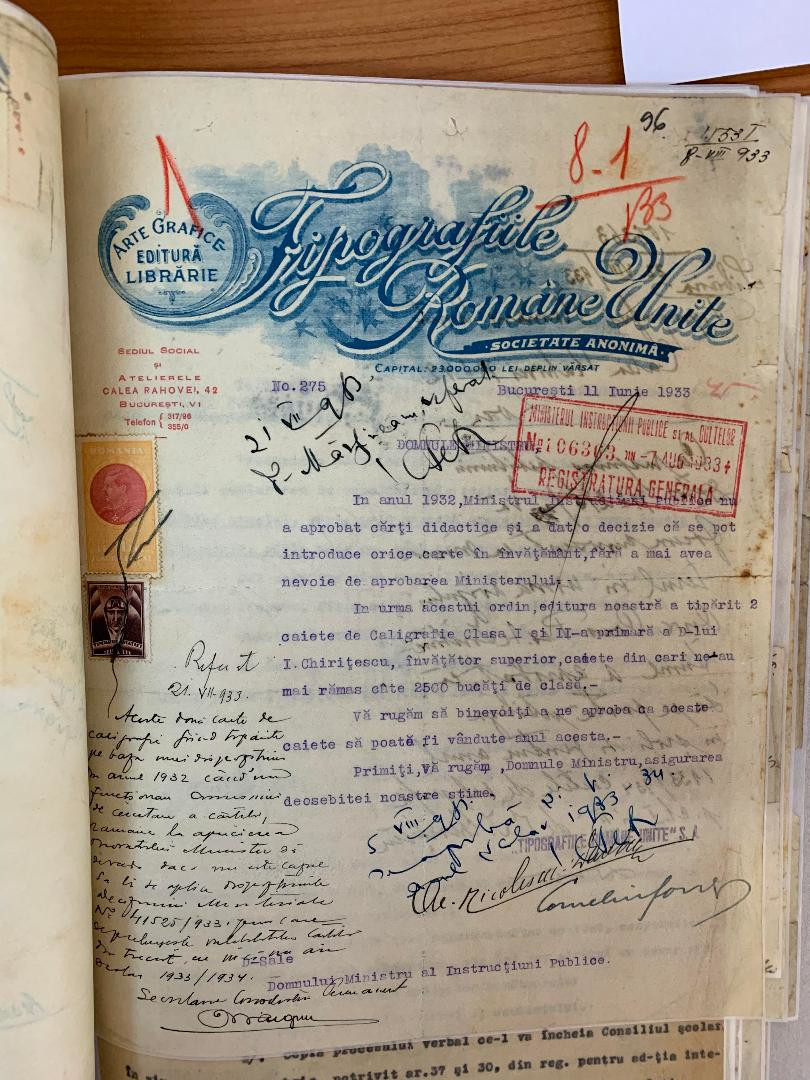 96
8-1
1531
8-VIII 933
133
ARTE GRAFICE
EDITURĂ
LIBRĂRIE
Tipografiile
Române Unite
SOCIETATE ANONIMĂ
CAPITAL: 23.000.000 LEI DEPLIN VĂRSAT
SEDIUL SOCIAL
ȘI
ATELIERELE
CALEA RAHOVEI, 42
BUCUREȘTI, VI
Telefon { 317/96
355/0
No. 275
București 11 Iunie 1933
21 VII 933
referat
MINISTERUL INSTRUCȚIUNII PUBLICE ȘI AL CULTELOR
No 106303 -7 AUG 1933
REGISTRATURA GENERALĂ
DOMNULE MINISTRU,
ROMANIA
In anul 1932, Ministrul Instrucției Publice nu
a aprobat cărți didactice și a dat o decizie că se pot
introduce orice carte în învățământ, fără a mai avea
nevoie de aprobarea Ministerului.
In urma acestui ordin, editura noastră a tipărit 2
caiete de Caligrafie Clasa I și II-a primară a D-lui
I. Chirițescu, învățător superior, caiete din cari ne-au
mai rămas câte 2500 bucăți de clasă.-
Vă rugăm să binevoiți a ne aproba ca aceste
caiete să poată fi vândute anul acesta.-
Primiți, Vă rugăm , Domnule Ministru, asigurarea
deosebitei noastre stime.
Referat
21.VII.933.
Aceste două caete de
caligrafie fiind tipărite
pe baza unei dispozițiuni
în anul 1932 când nu
funcționau comisiuni
de cercetare a cărților,
rămâne la aprecierea
Ministru să
dacă nu este cazul
să li se aplice dispozițiunile
deciziunii Ministeriale
No 41525/1933. prin care
se prelungește valabilitatea cărților
din trecut, pe an
școlar 1933/1934.
5 VIII 933
se aprobă p.
anul școlar 1933-34
"TIPOGRAFIILE ROMÂNE UNITE" S.A.
Al. Nicolescu
D-Sale
Domnului Ministru al Instrucțiuni Publice.
Secretarul
Copia procesului verbal ce-l va încheia Consiliul școlar
potrivit ar.37 și 30, din reg. pentru ad-ția inte-